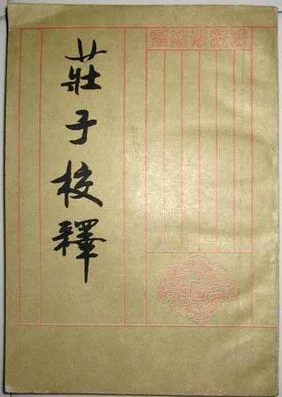 莊子校釋